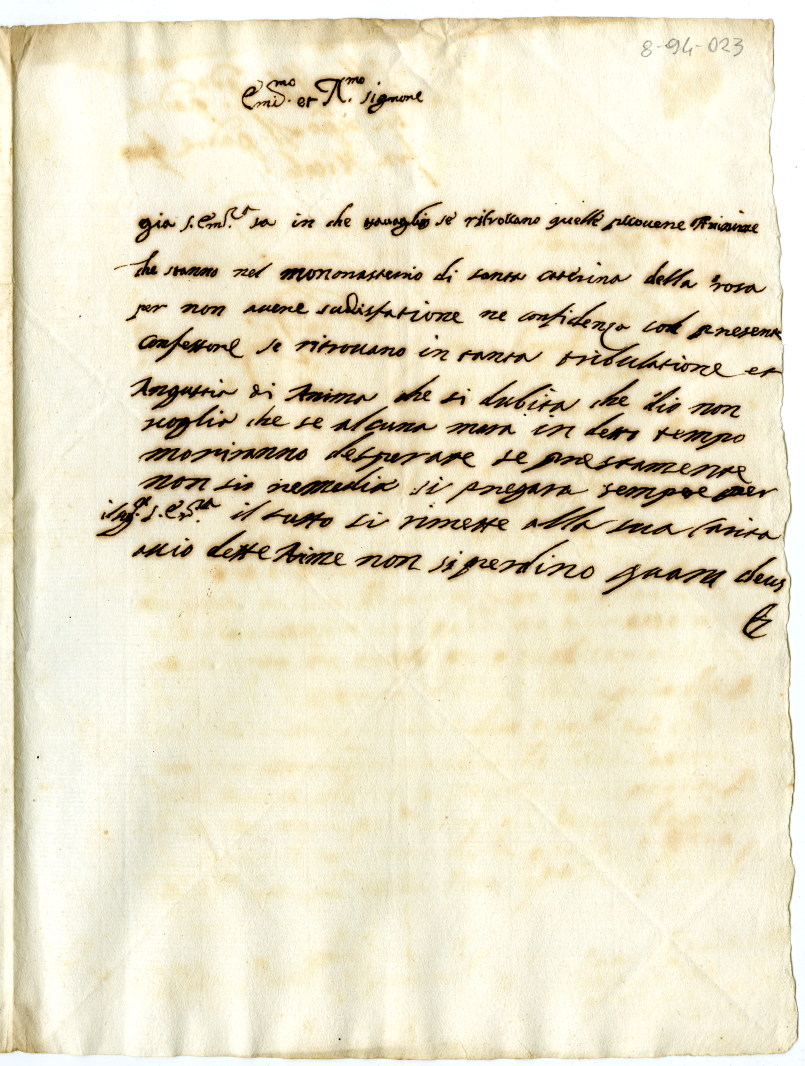 8-94-023
Em.mo et R.mo signore
gia S. Em.za sa in che travaglio se ritrovano quelle povere Anime
che stanno nel mononasterio di santa caterina della rosa
per non avere sudisfatione ne confidenza col presente
Confessore se ritrovano in tanta tribulatione et
Angustia di Anima che si dubita che dio non
voglia che se alcuna mora in detto tempo
moriranno desperate se prestamente
non sir remedia si pregara sempre per
S. Em.za il tutto si rimette alla sua Carita
accio dette Anime non si perdino quam deus